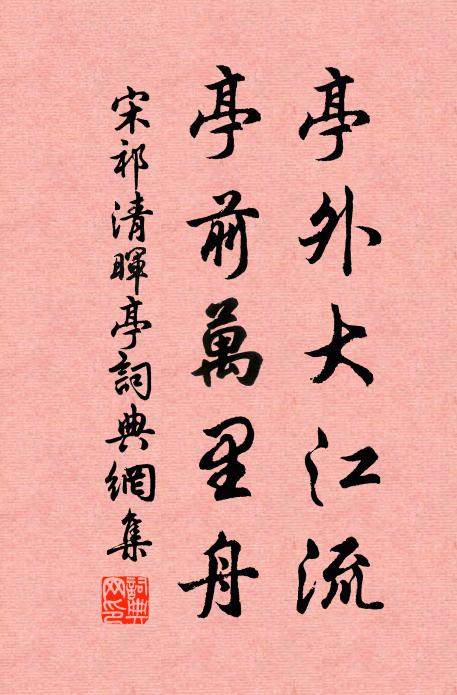 亭外大江流
亭前萬里舟
宋祁清暉亭詞典網集
詞典網印